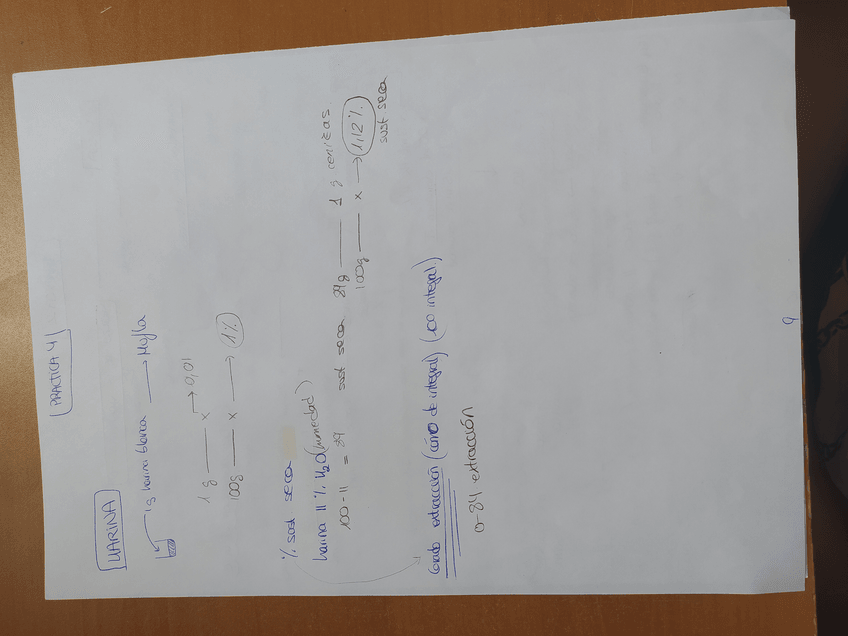 PRÁCTICA 4
HARINA
1g harina blanca → Mufla
1 g —— x → 0,01
100g —— x → 1%
% sust seca
harina 11% H2O (humedad)
100 - 11 = 89 sust seca 89g —— 1 g cenizas
100g —— x → 1,12%
sust seca
Grado extracción (cómo de integral) (100 integral)
0-84 extracción
9